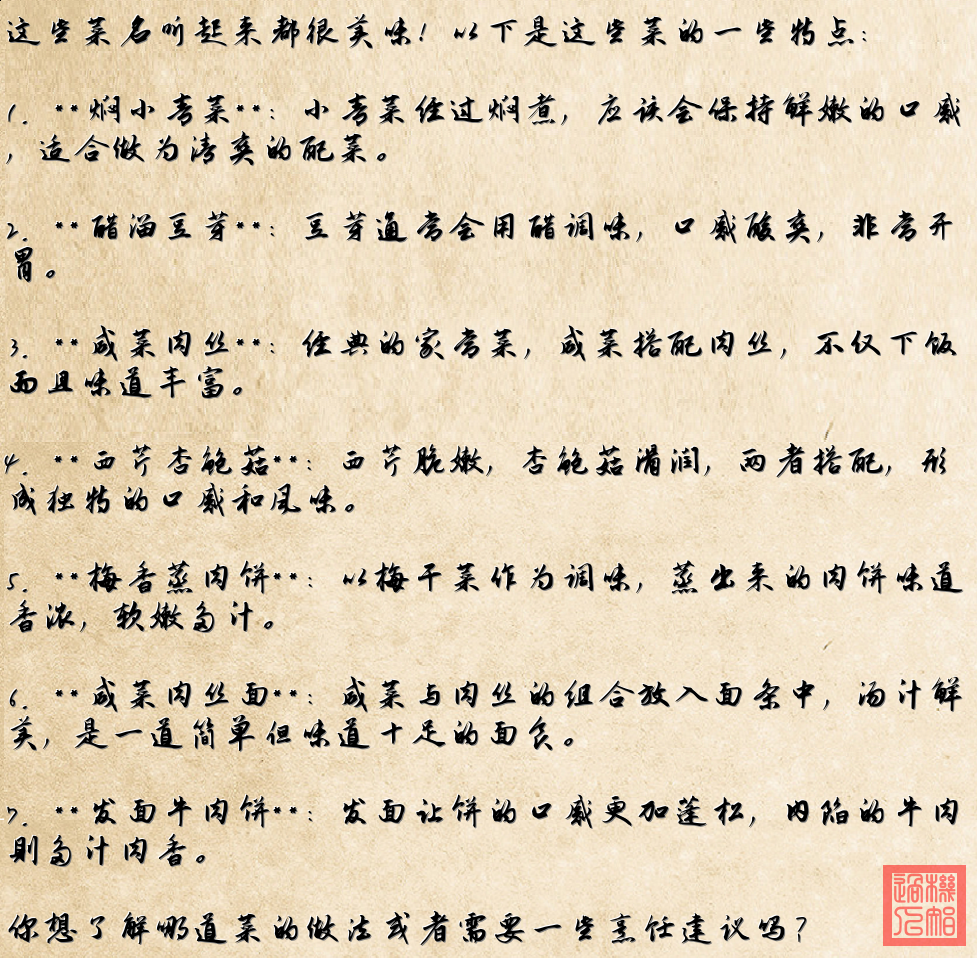 这些菜名听起来都很美味！以下是这些菜的一些特点：
1. **焖小青菜**：小青菜经过焖煮，应该会保持鲜嫩的口感
，适合做为清爽的配菜。
2. **醋溜豆芽**：豆芽通常会用醋调味，口感酸爽，非常开
胃。
3. **咸菜肉丝**：经典的家常菜，咸菜搭配肉丝，不仅下饭
而且味道丰富。
4. **西芹杏鲍菇**：西芹脆嫩，杏鲍菇滑润，两者搭配，形
成独特的口感和风味。
5. **梅香蒸肉饼**：以梅干菜作为调味，蒸出来的肉饼味道
香浓，软嫩多汁。
6. **咸菜肉丝面**：咸菜与肉丝的组合放入面条中，汤汁鲜
美，是一道简单但味道十足的面食。
7. **发面牛肉饼**：发面让饼的口感更加蓬松，内陷的牛肉
则多汁肉香。
你想了解哪道菜的做法或者需要一些烹饪建议吗？